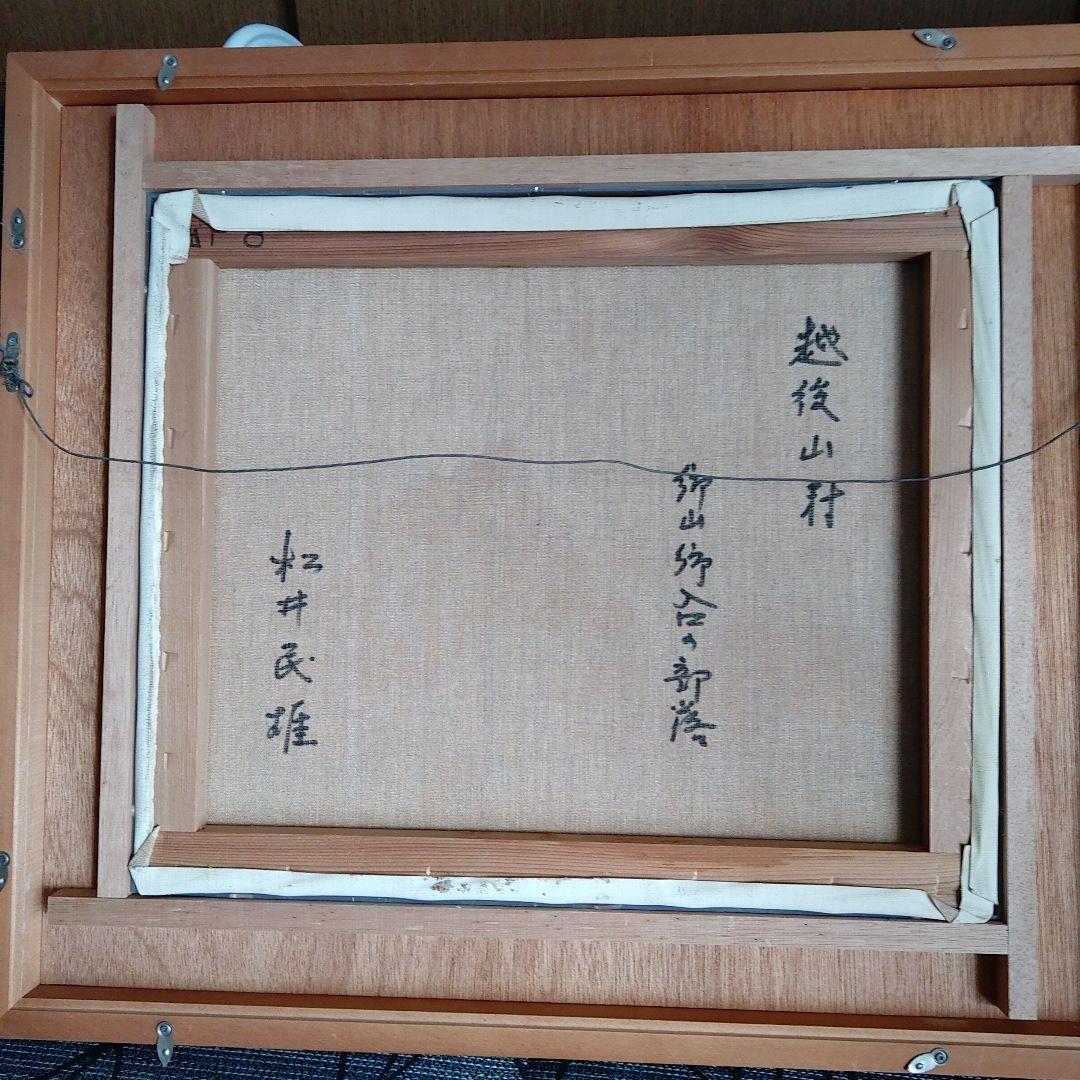 越後山村
御山御谷の部落
松井民雄